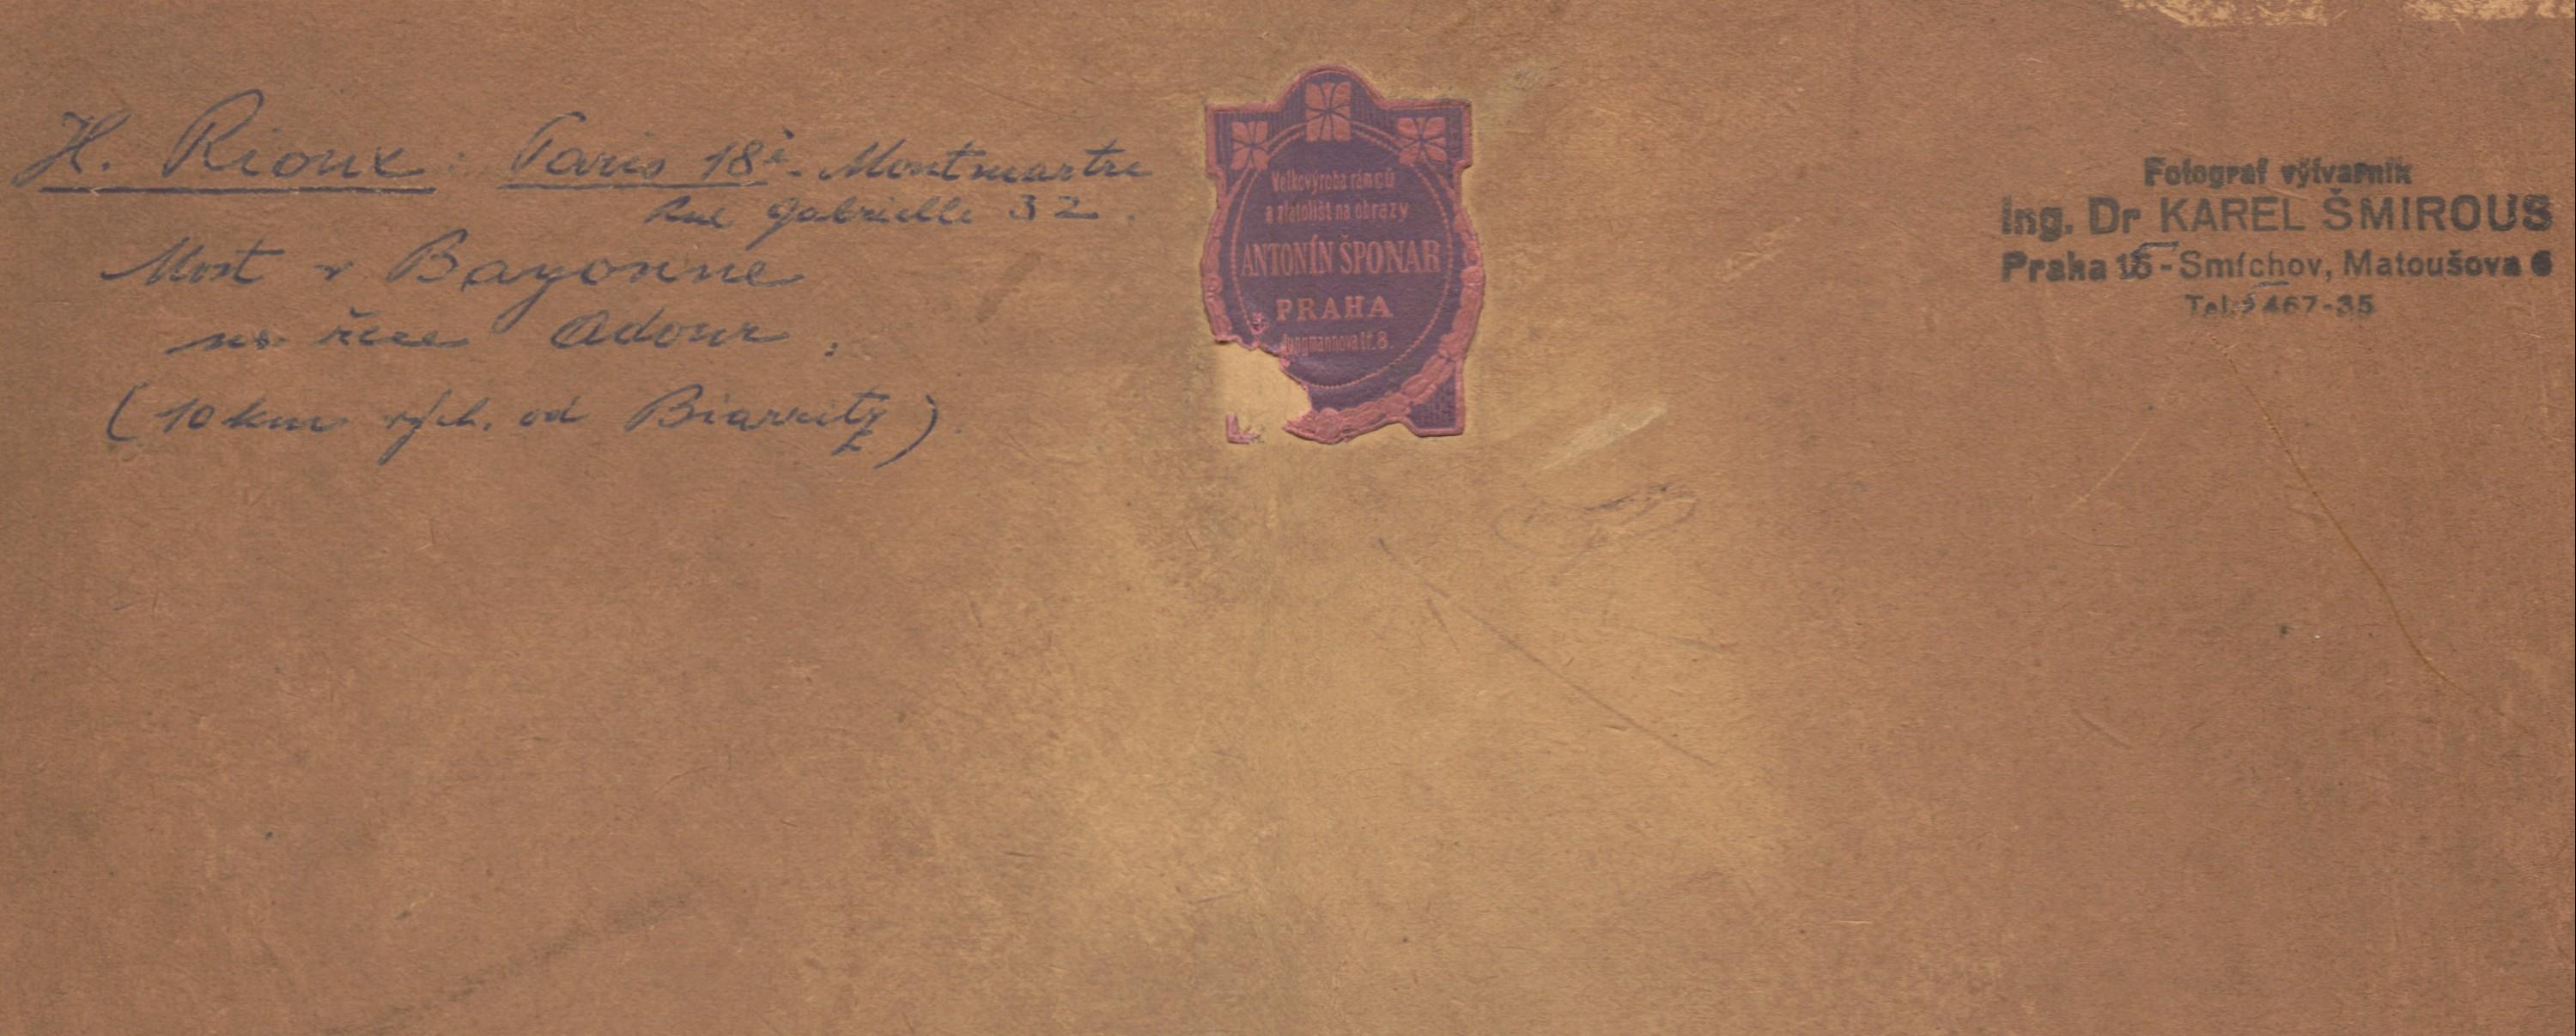 H. Rioux : Paris 18è - Montmartre
Rue Gabrielle 32.
Most v Bayonne
na řece Adour.
(10 km vých. od Biarritz).
Velkovýroba rámců
a zlatolišt na obrazy
ANTONÍN ŠPONAR
PRAHA
Jungmannova tř. 8.
Fotograf výtvarník
Ing. Dr KAREL ŠMIROUS
Praha 15 - Smíchov, Matoušova 6
Tel. 467-35